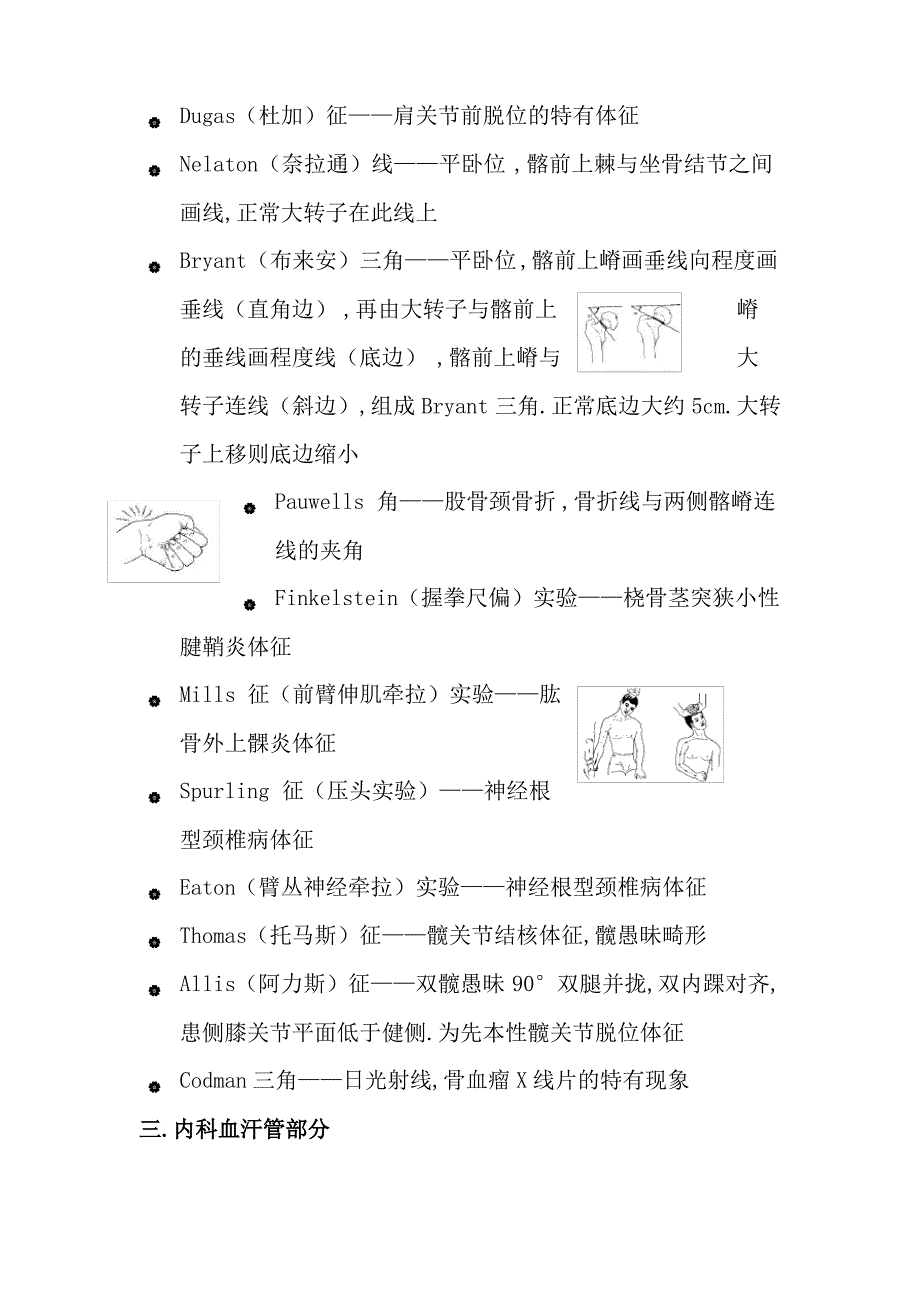 Dugas（杜加）征——肩关节前脱位的特有体征
Nelaton（奈拉通）线——平卧位 ,髂前上棘与坐骨结节之间
画线,正常大转子在此线上
Bryant（布来安）三角——平卧位,髂前上嵴画垂线向程度画
垂线（直角边） ,再由大转子与髂前上 嵴
的垂线画程度线（底边） ,髂前上嵴与 大
转子连线（斜边）,组成 Bryant 三角.正常底边大约 5cm.大转
子上移则底边缩小
Pauwells 角——股骨颈骨折 ,骨折线与两侧髂嵴连
线的夹角
Finkelstein（握拳尺偏）实验——桡骨茎突狭小性
腱鞘炎体征
Mills 征（前臂伸肌牵拉）实验——肱
骨外上髁炎体征
Spurling 征（压头实验）——神经根
型颈椎病体征
Eaton（臂丛神经牵拉）实验——神经根型颈椎病体征
Thomas（托马斯）征——髋关节结核体征,髋愚昧畸形
Allis（阿力斯）征——双髋愚昧 90° 双腿并拢,双内踝对齐,
患侧膝关节平面低于健侧.为先本性髋关节脱位体征
Codman 三角——日光射线,骨血瘤 X 线片的特有现象
三.内科血汗管部分